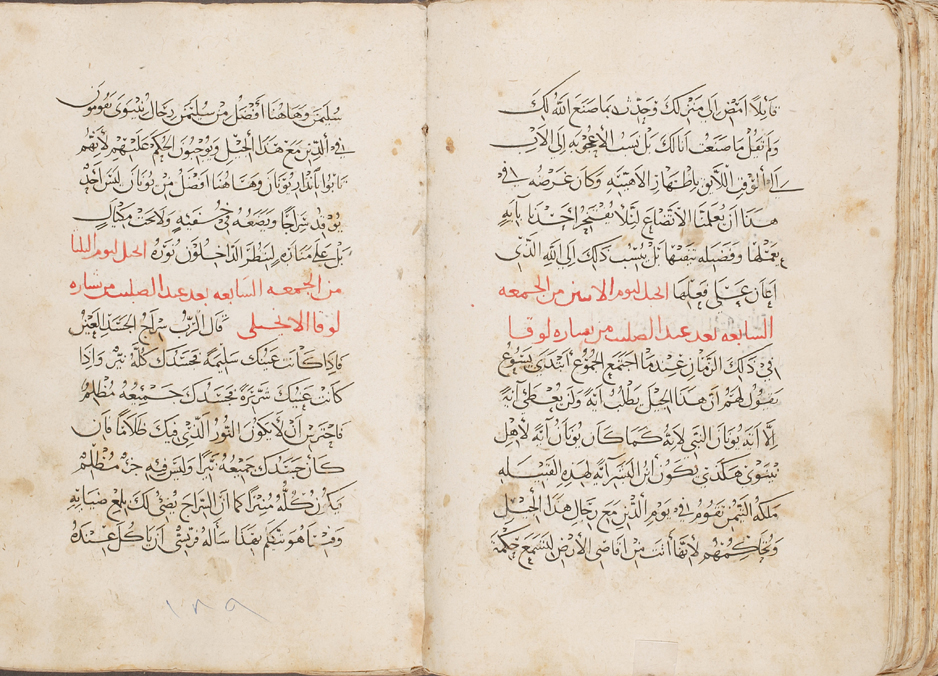 قايلاً امض الى منزلك وحدث بما صنع الله لك
ولم تقل ما صنعت انا لك بل نسب الاعجوبه الى الاب
اللايق باظهار الاهيته وكان غرضه في
هذا ان يعلمنا الاتضاع ليلا يفتخر احدنا بايه
يعملها وفضيله يتقنها بل ينسب ذلك الى الله الذي
اعان على فعلها الحل ليوم الاسن من الجمعه
السابعه بعد عيد الصليب من بشاره لوقا
في ذلك الزمان عندما اجتمع الجموع ابتدى يسوع
يقول لهم ان هذا الجيل يطلب ايه ولن يعطى ايه
الا ايه يونان النبي لانه كما كان يونان ايه لاهل
نينوى هكذى يكون ابن البشر ايه لهذه القبيله
ملكه التيمن تقوم في يوم الدين مع رجال هذا الجيل
وتحاكمهم لانها أتت من اقاصي الارض لتسمع حكمة
سليمن وهاهنا افضل من سليمن رجال نينوى يقومون
في الدين مع هذا الجيل ويوجبون الحكم عليهم لانهم
تابوا بانذار يونان وهاهنا افضل من يونان ليس احد
يوقد سراجا ويضعه في خفيه ولا تحت مكيال
بل على مناره لينظر الداخلون نوره الحل ليوم الثلثا
من الجمعه السابعه بعد عيد الصليب من بشاره
لوقا الانجيلي قال الرب سراج الجسد العين
فاذا كانت عينك سليمة فجسدك كله نير واذا
كانت عينك شريرة فجسدك جميعه مظلم
فاحترس ان لا يكون النور الذي فيك ظلاما فان
كان جسدك جميعه نيرا وليس فيه جزء مظلم
يكون كله منيرا كما ان السراج يضي لك بلمع ضيايه
وفيما هو يتكلم بهذا ساله فريسي ان ياكل عنده
١٨٩